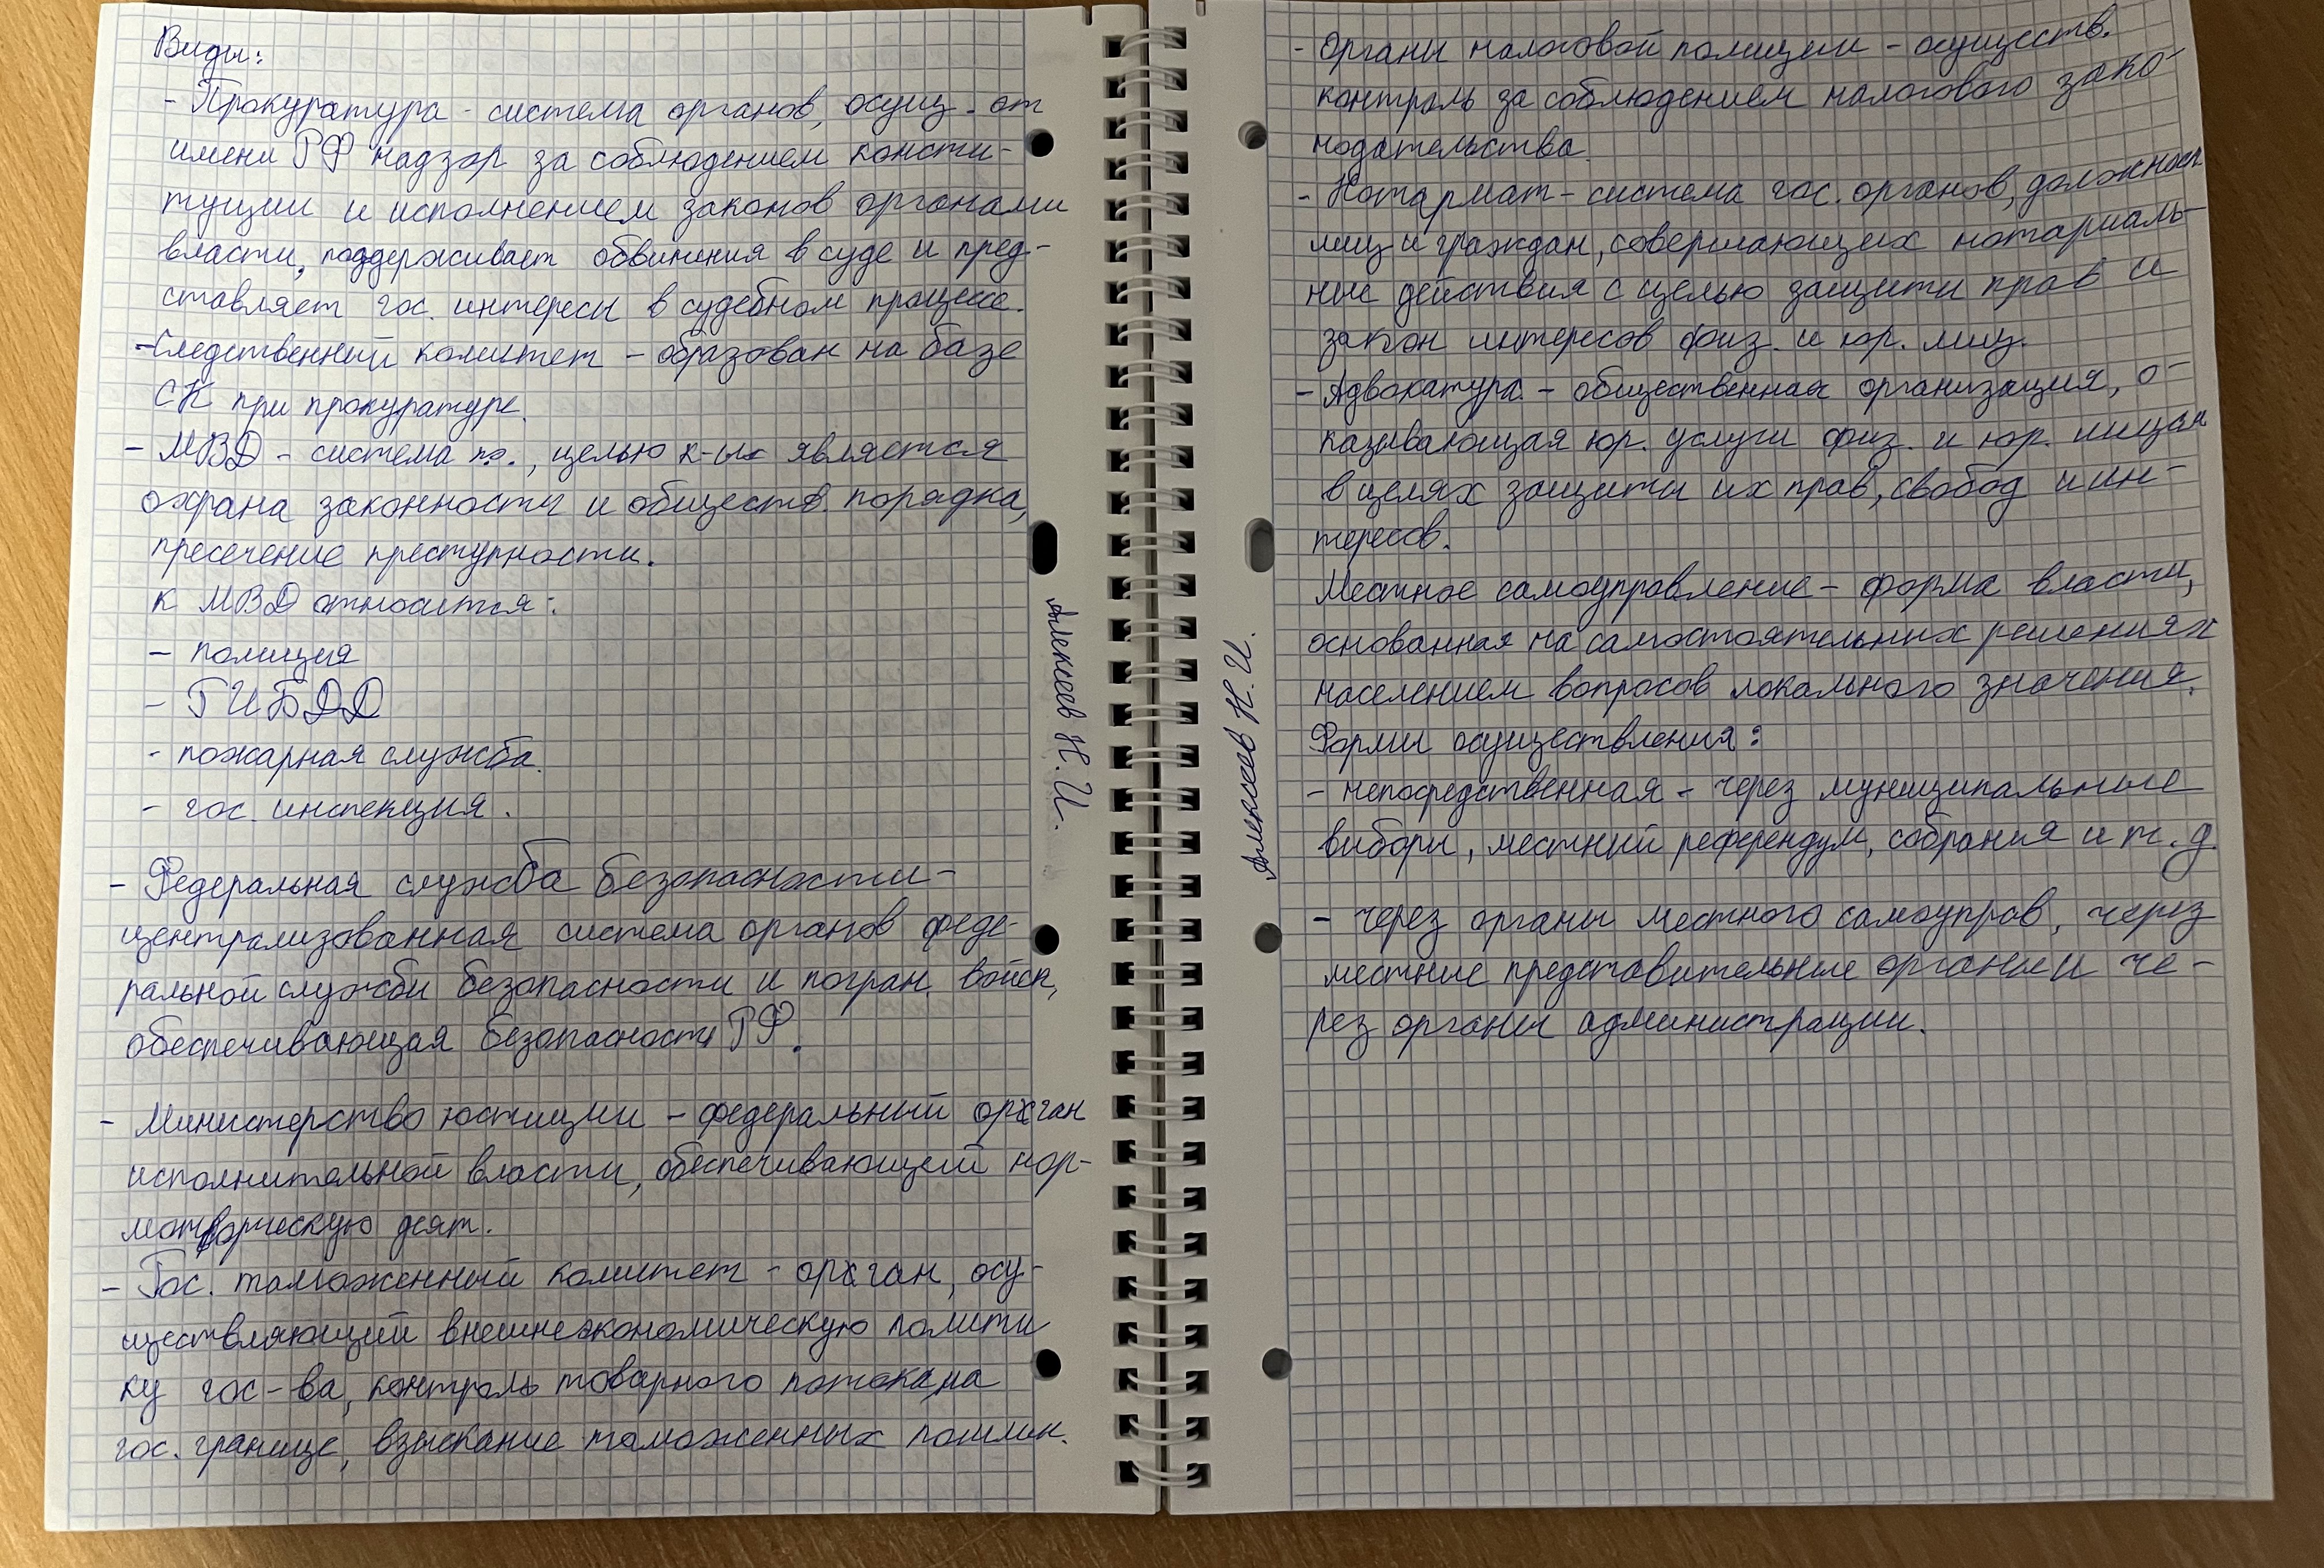 Виды:
- Прокуратура - система органов, осущ. от
имени РФ надзор за соблюдением консти-
туции и исполнением законов органами
власти, поддерживает обвинения в суде и пред-
ставляет гос. интересы в судебном процессе.
- Следственный комитет - образован на базе
СК при прокуратуре.
- МВД - система по., целью к-ых является
охрана законности и обществ. порядка,
пресечение преступности.
К МВД относится:
- полиция
- ГИБДД
- пожарная служба.
- гос. инспекция.
- Федеральная служба безопасности -
централизованная система органов феде-
ральной службы безопасности и погран. войск,
обеспечивающая безопасность РФ.
- Министерство юстиции - федеральный орган
исполнительной власти, обеспечивающий нор-
мотворческую деят.
- Гос. таможенный комитет - орган, осу-
ществляющий внешнеэкономическую полити
ку гос-ва, контроль товарного потока на
гос. границе, взыскание таможенных пошлин.
Алексеев Н. И.
Алексеев Н. И.
- Органы налоговой полиции - осуществ.
контроль за соблюдением налогового зако-
нодательства.
- Нотариат - система гос. органов, должност
лиц и граждан, совершающих нотариаль-
ные действия с целью защиты прав и
закон интересов физ. и юр. лиц.
- Адвокатура - общественная организация, о-
казывающая юр. услуги физ. и юр. лицам
в целях защиты их прав, свобод и ин-
тересов.
Местное самоуправление - форма власти,
основанная на самостоятельных решениях
населением вопросов локального значения.
Формы осуществления:
- непосредственная - через муниципальные
выборы, местный референдум, собрания и т. д.
- через органы местного самоуправ, через
местные представительные органы и че-
рез органы администрации.